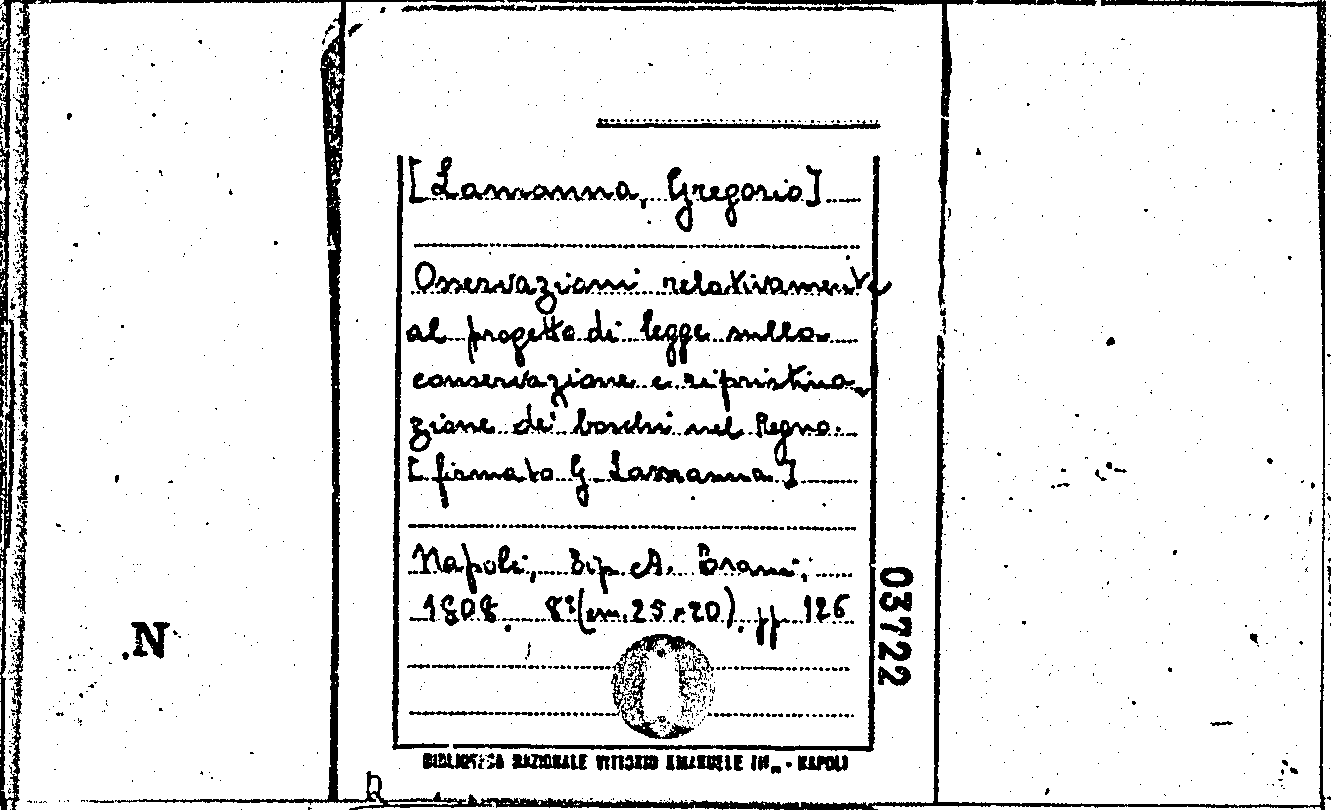 [Lamanna, Gregorio]
Osservazioni relativamente
al progetto di legge sulla
conservazione e ripristina-
zione dei boschi nel Regno.
[firmato G. Lamanna]
Napoli, Tip. A. Trani,
8º (cm. 25 x 20). pp 126
03722
N
BIBLIOTECA NAZIONALE VITTORIO EMANUELE III - NAPOLI